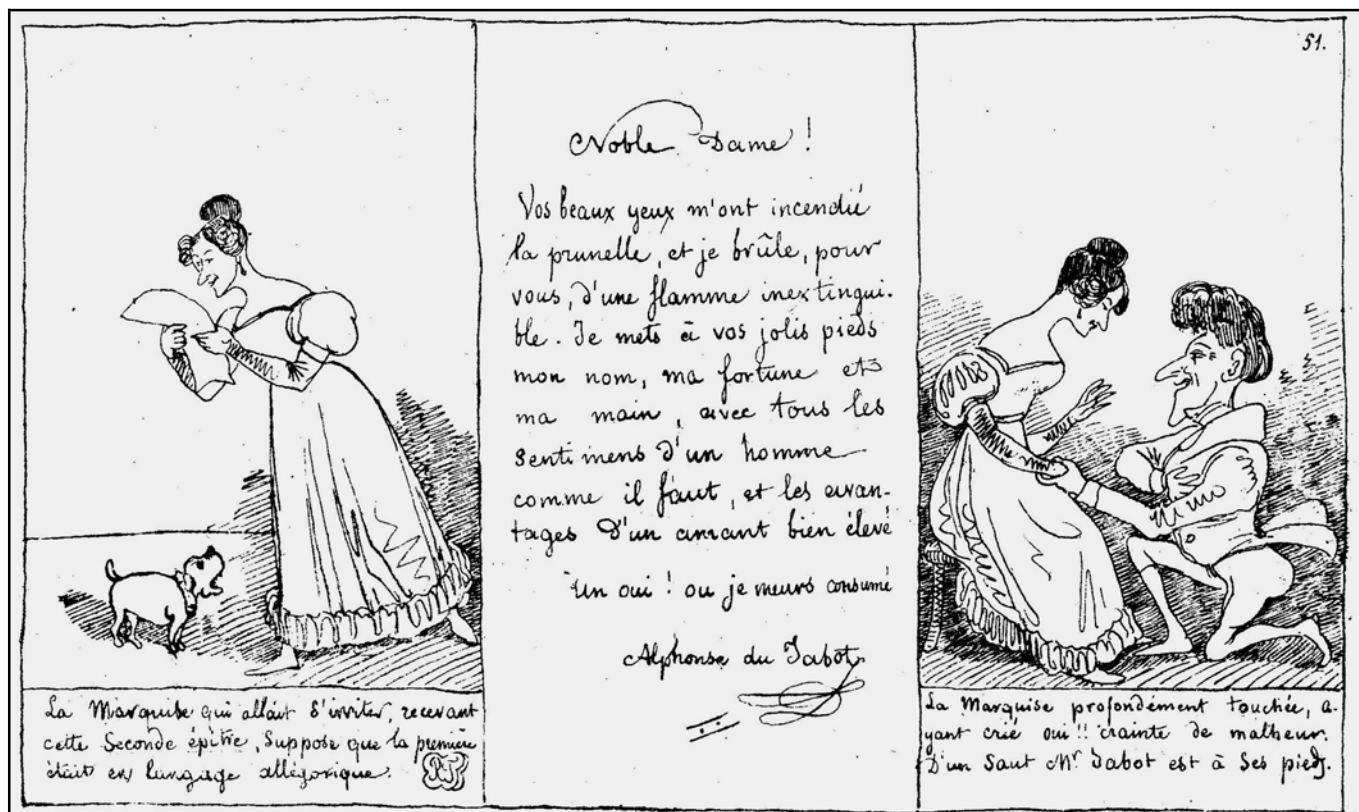 51.
La Marquise qui allait s'irriter, recevant
cette seconde épitre, suppose que la première
était en langage allégorique.
RT
Noble Dame !
Vos beaux yeux m'ont incendié
la prunelle, et je brûle, pour
vous, d'une flamme inextingui-
ble. Je mets à vos jolis pieds
mon nom, ma fortune et
ma main, avec tous les
sentimens d'un homme
comme il faut, et les avan-
tages d'un amant bien élevé
Un oui ! ou je meurs consumé
Alphonse du Jabot.
La Marquise profondément touchée, a-
yant crié oui !! crainte de malheur.
D'un saut Mr Jabot est à ses pieds.